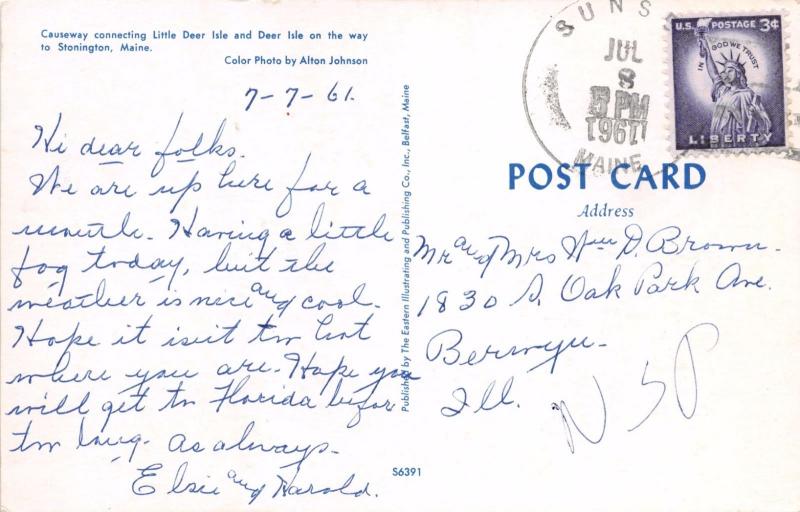 Causeway connecting Little Deer Isle and Deer Isle on the way
to Stonington, Maine.
Color Photo by Alton Johnson
7-7-61.
Hi dear folks.
We are up here for a
month. Having a little
fog today, but the
weather is nice and cool.
Hope it isn't too hot
where you are. Hope you
will get to Florida before
too long. As always.
Elsie and Harold.
Published by The Eastern Illustrating and Publishing Co., Inc., Belfast, Maine
S6391
SUNS
JUL
8
5 PM
1961
MAINE
U.S. POSTAGE 3¢
IN GOD WE TRUST
LIBERTY
POST CARD
Address
Mr and Mrs Wm D. Brown.
1830 S. Oak Park Ave.
Berwyn.
Ill.
NSP